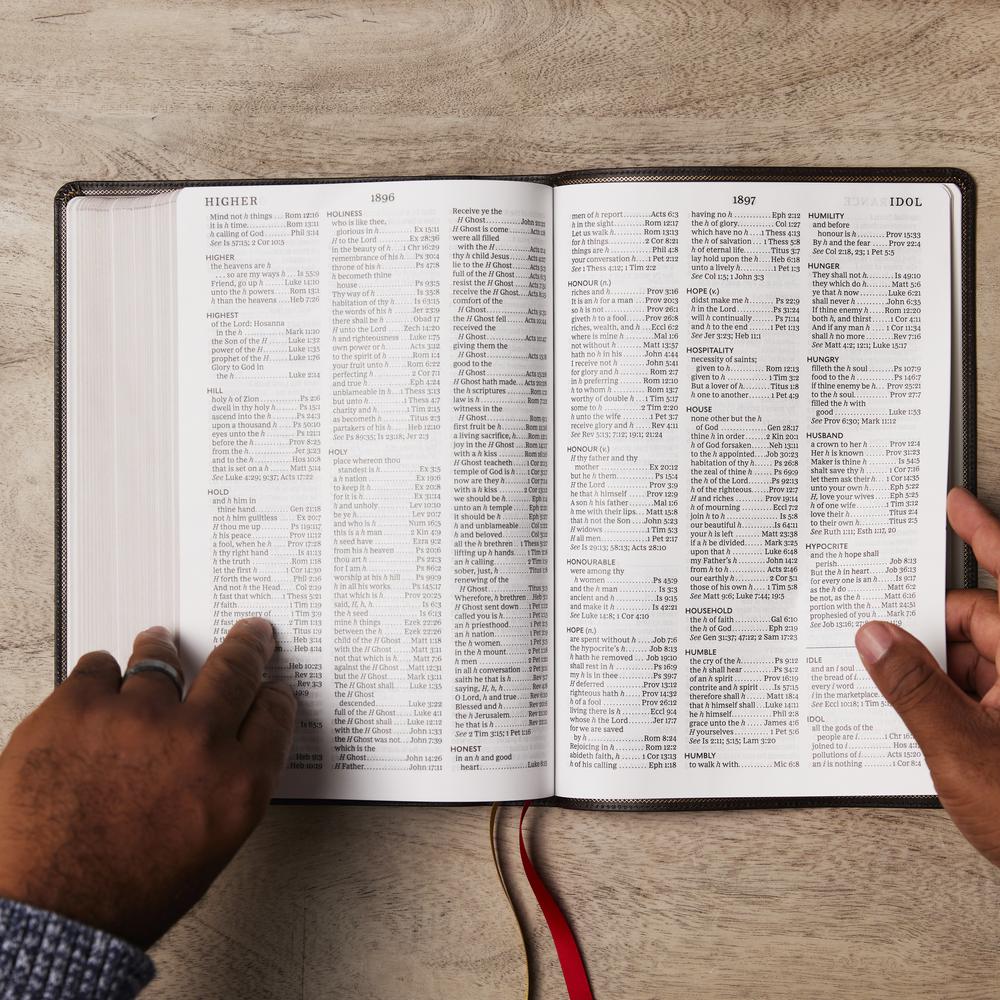 HIGHER
1896
Mind not h things ... Rom 12:16
it is h time ... Rom 13:11
h calling of God ... Phil 3:14
See Is 57:15; 2 Cor 10:5
HIGHER
the heavens are h
... so are my ways h ... Is 55:9
Friend, go up h ... Luke 14:10
unto the h powers ... Rom 13:1
h than the heavens ... Heb 7:26
HIGHEST
of the Lord: Hosanna
in the h ... Mark 11:10
the Son of the H ... Luke 1:32
power of the H ... Luke 1:35
prophet of the H ... Luke 1:76
Glory to God in
the h ... Luke 2:14
HILL
holy h of Zion ... Ps 2:6
dwell in thy holy h ... Ps 15:1
ascend into the h ... Ps 24:3
upon a thousand h ... Ps 50:10
eyes unto the h ... Ps 121:1
before the h ... Prov 8:25
from the h ... Jer 3:23
and to the h ... Hos 10:8
that is set on a h ... Matt 5:14
See Luke 4:29; 9:37; Acts 17:22
HOLD
and h him in
thine hand ... Gen 21:18
not h him guiltless ... Ex 20:7
H thou me up ... Ps 119:117
h his peace ... Prov 11:12
a fool, when he h ... Prov 17:28
thy right hand ... Is 41:13
h the truth ... Rom 1:18
let the first h ... 1 Cor 14:30
H forth the word ... Phil 2:16
And not h the Head ... Col 2:19
h fast that which ... 1 Thess 5:21
H faith ... 1 Tim 1:19
H the mystery of ... 1 Tim 3:9
HOLINESS
who is like thee,
glorious in h ... Ex 15:11
H to the Lord ... Ex 28:36
in the beauty of h ... 1 Chr 16:29
remembrance of his h ... Ps 30:4
throne of his h ... Ps 47:8
h becometh thine
house ... Ps 93:5
Thy way of h ... Is 35:8
habitation of thy h ... Is 63:15
the words of his h ... Jer 23:9
there shall be h ... Obad 17
H unto the Lord ... Zech 14:20
h and righteousness ... Luke 1:75
own power or h ... Acts 3:12
to the spirit of h ... Rom 1:4
your fruit unto h ... Rom 6:22
perfecting h ... 2 Cor 7:1
and true h ... Eph 4:24
unblameable in h ... 1 Thess 3:13
but unto h ... 1 Thess 4:7
charity and h ... 1 Tim 2:15
as becometh h ... Titus 2:3
partakers of his h ... Heb 12:10
See Ps 89:35; Is 23:18; Jer 2:3
HOLY
place whereon thou
standest is h ... Ex 3:5
a h nation ... Ex 19:6
to keep it h ... Ex 20:8
for it is h ... Ex 31:14
h and unholy ... Lev 10:10
be ye h ... Lev 20:7
and who is h ... Num 16:5
this is a h man ... 2 Kin 4:9
h seed have ... Ezra 9:2
from his h heaven ... Ps 20:6
thou art h ... Ps 22:3
for I am h ... Ps 86:2
worship at his h hill ... Ps 99:9
h in all his works ... Ps 145:17
that which is h ... Prov 20:25
said, H, h, h ... Is 6:3
the h seed ... Is 6:13
mine h things ... Ezek 22:26
between the h ... Ezek 22:26
child of the H Ghost ... Matt 1:18
with the H Ghost ... Matt 3:11
not that which is h ... Matt 7:6
against the H Ghost ... Matt 12:31
but the H Ghost ... Mark 13:11
The H Ghost shall ... Luke 1:35
the H Ghost
descended ... Luke 3:22
full of the H Ghost ... Luke 4:1
the H Ghost shall ... Luke 12:12
with the H Ghost ... John 1:33
the H Ghost was not ... John 7:39
which is the
H Ghost ... John 14:26
H Father ... John 17:11
Receive ye the
H Ghost
H Ghost is come
were all filled
with the H
thy h child Jesus
lie to the H Ghost
full of the H Ghost
resist the H Ghost
receive the H Ghost
comfort of the
H Ghost
the H Ghost fell
received the
H Ghost
giving them the
H Ghost
good to the
H Ghost
H Ghost hath made
the h scriptures
law is h
witness in the
H Ghost
first fruit be h
a living sacrifice, h
joy in the H Ghost
with a h kiss
H Ghost teacheth
temple of God is h
now are they h
with a h kiss
we should be h
unto an h temple
it should be h
h and unblameable
h and beloved
all the h brethren
lifting up h hands
an h calling
sober, just, h
renewing of the
H Ghost
Wherefore, h brethren
H Ghost sent down
called you is h
an h priesthood
an h nation
the h women
in the h mount
h men
in all h conversation
saith he that is h
saying, H, h, h
O Lord, h and true
Blessed and h
the h Jerusalem
he that is h
See 2 Tim 3:15; 1 Pet 1:16
HONEST
in an h and good
heart ... Luke 8:15
1897
IDOL
men of h report ... Acts 6:3
h in the sight ... Rom 12:17
Let us walk h ... Rom 13:13
for h things ... 2 Cor 8:21
things are h ... Phil 4:8
your conversation h ... 1 Pet 2:12
See 1 Thess 4:12; 1 Tim 2:2
HONOUR (n.)
riches and h ... Prov 3:16
It is an h for a man ... Prov 20:3
so h is not ... Prov 26:1
giveth h to a fool ... Prov 26:8
riches, wealth, and h ... Eccl 6:2
where is mine h ... Mal 1:6
not without h ... Matt 13:57
hath no h in his ... John 4:44
I receive not h ... John 5:41
for glory and h ... Rom 2:7
in h preferring ... Rom 12:10
h to whom h ... Rom 13:7
worthy of double h ... 1 Tim 5:17
some to h ... 2 Tim 2:20
h unto the wife ... 1 Pet 3:7
receive glory and h ... Rev 4:11
See Rev 5:13; 7:12; 19:1; 21:24
HONOUR (v.)
H thy father and thy
mother ... Ex 20:12
but he h them ... Ps 15:4
H the Lord ... Prov 3:9
he that h himself ... Prov 12:9
A son h his father ... Mal 1:6
h me with their lips ... Matt 15:8
that h not the Son ... John 5:23
H widows ... 1 Tim 5:3
H all men ... 1 Pet 2:17
See Is 29:13; 58:13; Acts 28:10
HONOURABLE
were among thy
h women ... Ps 45:9
and the h man ... Is 3:3
ancient and h ... Is 9:15
and make it h ... Is 42:21
See Luke 14:8; 1 Cor 4:10
HOPE (n.)
are spent without h ... Job 7:6
the hypocrite's h ... Job 8:13
h hath he removed ... Job 19:10
shall rest in h ... Ps 16:9
my h is in thee ... Ps 39:7
H deferred ... Prov 13:12
righteous hath h ... Prov 14:32
h of a fool ... Prov 26:12
living there is h ... Eccl 9:4
whose h the Lord ... Jer 17:7
for we are saved
by h ... Rom 8:24
Rejoicing in h ... Rom 12:2
abideth faith, h ... 1 Cor 13:13
h of his calling ... Eph 1:18
having no h ... Eph 2:12
the h of glory ... Col 1:27
which have no h ... 1 Thess 4:13
the h of salvation ... 1 Thess 5:8
of eternal life ... Titus 3:7
lay hold upon the h ... Heb 6:18
unto a lively h ... 1 Pet 1:3
See Col 1:5; 1 John 3:3
HOPE (v.)
didst make me h ... Ps 22:9
h in the Lord ... Ps 31:24
will h continually ... Ps 71:14
and h to the end ... 1 Pet 1:13
See Jer 3:23; Heb 11:1
HOSPITALITY
necessity of saints;
given to h ... Rom 12:13
given to h ... 1 Tim 3:2
But a lover of h ... Titus 1:8
h one to another ... 1 Pet 4:9
HOUSE
none other but the h
of God ... Gen 28:17
thine h in order ... 2 Kin 20:1
h of God forsaken ... Neh 13:11
to the h appointed ... Job 30:23
habitation of thy h ... Ps 26:8
the zeal of thine h ... Ps 69:9
the h of the Lord ... Ps 92:13
h of the righteous ... Prov 12:7
H and riches ... Prov 19:14
h of mourning ... Eccl 7:2
join h to h ... Is 5:8
our beautiful h ... Is 64:11
your h is left ... Matt 23:38
if a h be divided ... Mark 3:25
upon that h ... Luke 6:48
my Father's h ... John 14:2
from h to h ... Acts 2:46
our earthly h ... 2 Cor 5:1
those of his own h ... 1 Tim 5:8
See Matt 9:6; Luke 7:44; 19:5
HOUSEHOLD
the h of faith ... Gal 6:10
the h of God ... Eph 2:19
See Gen 31:37; 47:12; 2 Sam 17:23
HUMBLE
the cry of the h ... Ps 9:12
the h shall hear ... Ps 34:2
of an h spirit ... Prov 16:19
contrite and h spirit ... Is 57:15
therefore shall h ... Matt 18:4
that h himself shall ... Luke 14:11
he h himself ... Phil 2:8
grace unto the h ... James 4:6
H yourselves ... 1 Pet 5:6
See Is 2:11; 5:15; Lam 3:20
HUMBLY
to walk h with ... Mic 6:8
HUMILITY
and before
honour is h ... Prov 15:33
By h and the fear ... Prov 22:4
See Col 2:18, 23; 1 Pet 5:5
HUNGER
They shall not h ... Is 49:10
they which do h ... Matt 5:6
ye that h now ... Luke 6:21
shall never h ... John 6:35
If thine enemy h ... Rom 12:20
both h, and thirst ... 1 Cor 4:11
And if any man h ... 1 Cor 11:34
shall h no more ... Rev 7:16
See Matt 4:2; 12:1; Luke 15:17
HUNGRY
filleth the h soul ... Ps 107:9
food to the h ... Ps 146:7
if thine enemy be h ... Prov 25:21
to the h soul ... Prov 27:7
filled the h with
good ... Luke 1:53
See Prov 6:30; Mark 11:12
HUSBAND
a crown to her h ... Prov 12:4
Her h is known ... Prov 31:23
Maker is thine h ... Is 54:5
shalt save thy h ... 1 Cor 7:16
let them ask their h ... 1 Cor 14:35
unto your own h ... Eph 5:22
H, love your wives ... Eph 5:25
h of one wife ... 1 Tim 3:2
love their h ... Titus 2:4
to their own h ... Titus 2:5
See Ruth 1:11; Esth 1:17, 20
HYPOCRITE
and the h hope shall
perish ... Job 8:13
But the h in heart ... Job 36:13
for every one is an h ... Is 9:17
as the h do ... Matt 6:2
be not, as the h ... Matt 6:16
portion with the h ... Matt 24:51
prophesied of you h ... Mark 7:6
See Job 13:16; 27:
IDLE
and an i soul
the bread of i
every i word
i in the marketplace
See Eccl 10:18; 1 Tim 5:
IDOL
all the gods of the
people are i ... 1 Chr 16:
joined to i ... Hos 4:
pollutions of i ... Acts 15:20
an i is nothing ... 1 Cor 8:4